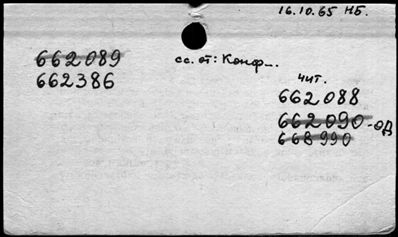 16.10.65 НБ.
662089
662386
сс. от: Конф...
чит.
662088
662090-од
668990